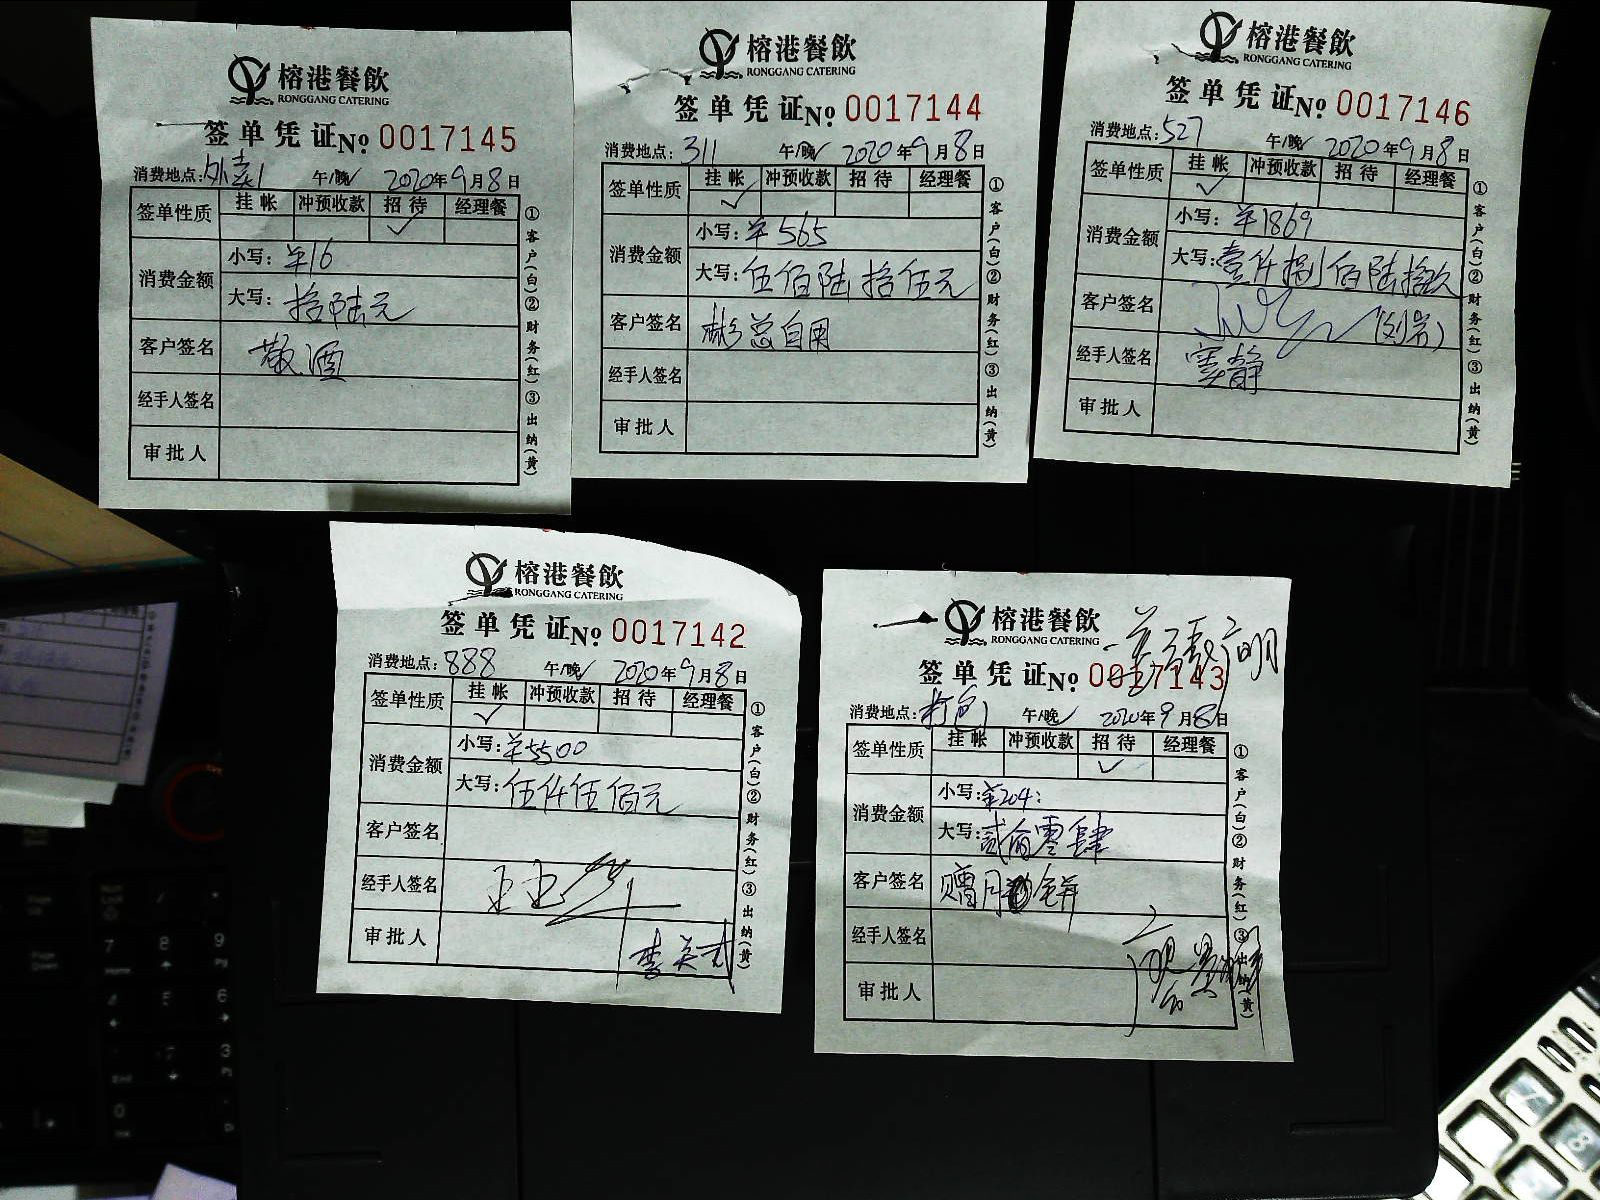 榕港餐飲
RONGGANG CATERING
签单凭证No 0017145
消费地点:外卖1 午/晚✓ 2020年9月8日
签单性质 挂帐 冲预收款 招待 经理餐
✓
消费金额 小写:¥16
大写:拾陆元
客户签名 敬酒
经手人签名
审批人
①客户(白)②财务(红)③出纳(黄)
榕港餐飲
RONGGANG CATERING
签单凭证No 0017144
消费地点:311 午/晚✓ 2020年9月8日
签单性质 挂帐 冲预收款 招待 经理餐
✓
消费金额 小写:¥565
大写:伍佰陆拾伍元
客户签名 彬总自用
经手人签名
审批人
①客户(白)②财务(红)③出纳(黄)
榕港餐飲
RONGGANG CATERING
签单凭证No 0017146
消费地点:527 午/晚✓ 2020年9月8日
签单性质 挂帐 冲预收款 招待 经理餐
✓
消费金额 小写:¥1869
大写:壹仟捌佰陆拾玖
客户签名
经手人签名
审批人
①客户(白)②财务(红)③出纳(黄)
榕港餐飲
RONGGANG CATERING
签单凭证No 0017142
消费地点:888 午/晚✓ 2020年9月8日
签单性质 挂帐 冲预收款 招待 经理餐
✓
消费金额 小写:¥5500
大写:伍仟伍佰元
客户签名
经手人签名
审批人
①客户(白)②财务(红)③出纳(黄)
榕港餐飲
RONGGANG CATERING
签单凭证No 0017143
消费地点:打包1 午/晚✓ 2020年9月8日
签单性质 挂帐 冲预收款 招待 经理餐
✓
消费金额 小写:¥204:
大写:贰佰零肆
客户签名 赠月饼
经手人签名
审批人
①客户(白)②财务(红)③出纳(黄)